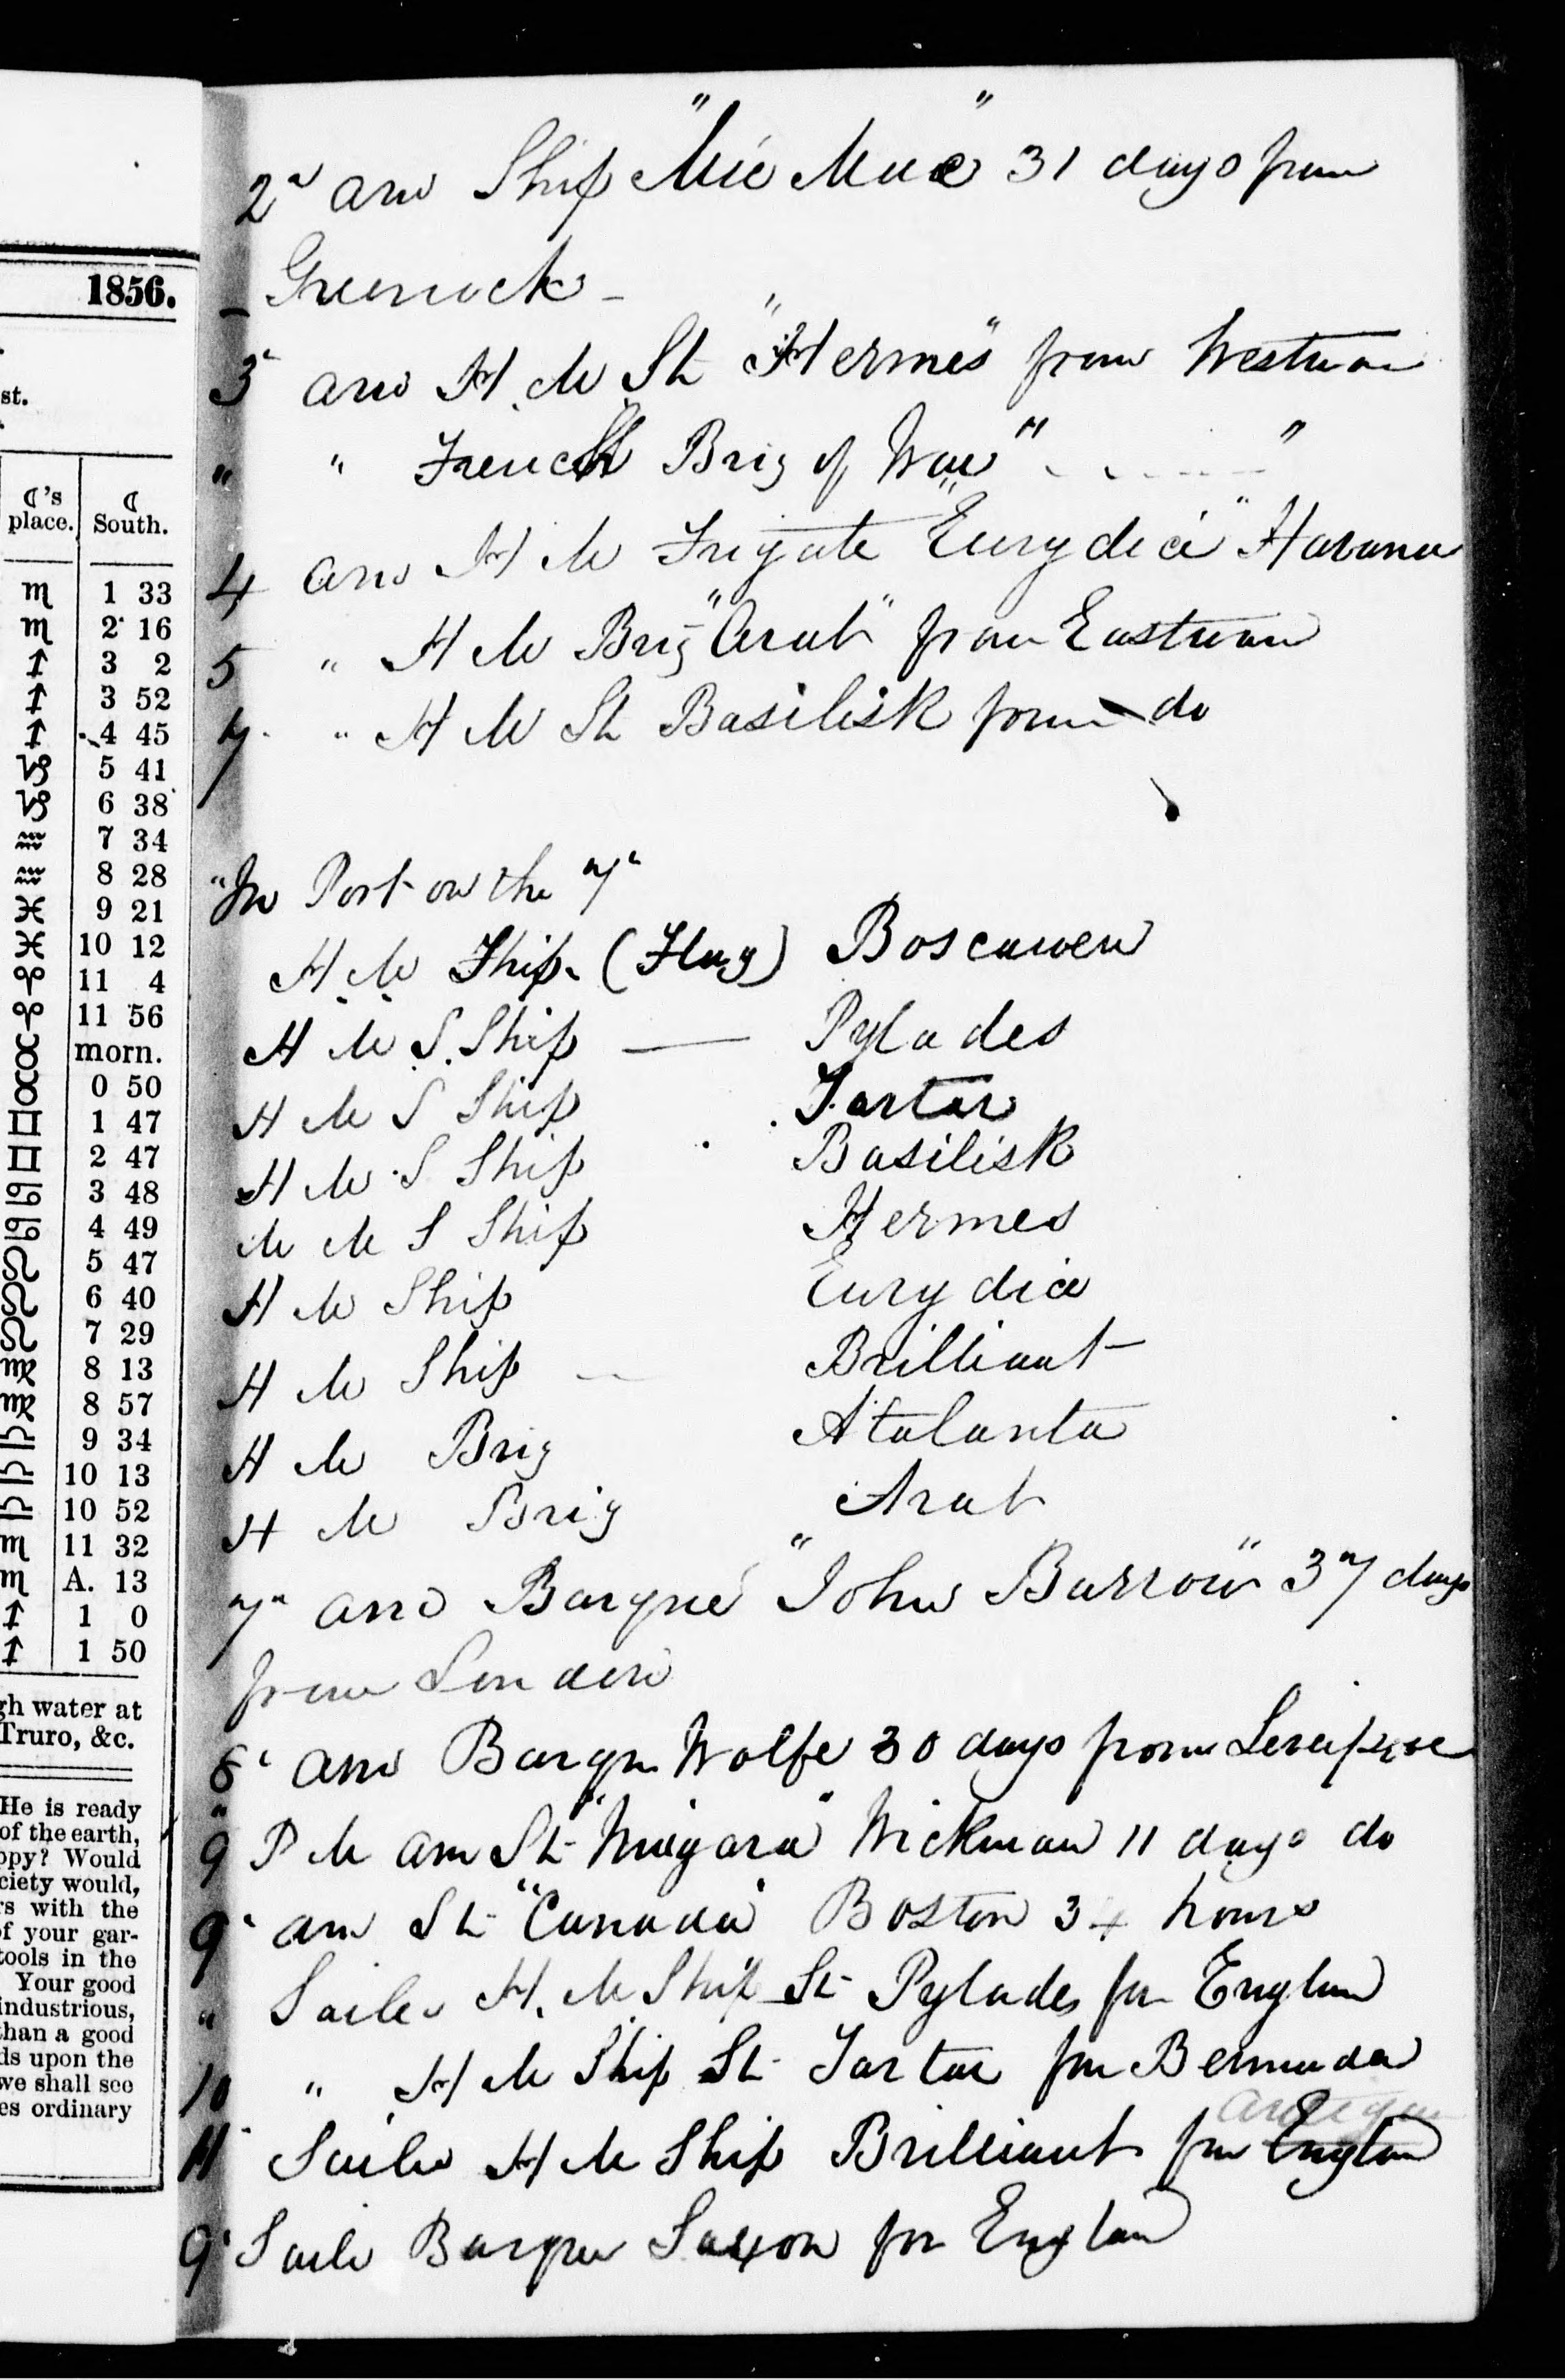 1856.
st.
☾'s place. ☾ South.
♏ 1 33
♏ 2 16
♐ 3 2
♐ 3 52
♐ 4 45
♑ 5 41
♑ 6 38
♒ 7 34
♒ 8 28
♓ 9 21
♓ 10 12
♈ 11 4
♈ 11 56
♉ morn.
♉ 0 50
♊ 1 47
♊ 2 47
♋ 3 48
♋ 4 49
♌ 5 47
♌ 6 40
♌ 7 29
♍ 8 13
♍ 8 57
♎ 9 34
♎ 10 13
♎ 10 52
♏ 11 32
♏ A. 13
♐ 1 0
♐ 1 50
gh water at
Truro, &c.
He is ready
of the earth,
ppy? Would
ciety would,
rs with the
of your gar-
tools in the
Your good
industrious,
than a good
ds upon the
we shall see
es ordinary
2d arr Ship "Mic Mac" 31 days from
Greenock -
3" arr H. M. St "Hermes" from Westwar
" " French Brig of War " "
4 arr H M Frigate "Eurydice" Havana
5 " H M Brig "Arab" from Eastwar
7 " H M St Basilisk from do
"In Port on the 7"
H. M. Ship. (Flag) Boscawen
H M S. Ship — Pylades
H M S Ship Tartar
H M S Ship Basilisk
M M S Ship Hermes
H M Ship Eurydice
H M Ship — Brilliant
H M Brig Atalanta
H M Brig Arab
7" arr Barque "John Barrow" 37 days
from London
8" arr Barqu Wolfe 30 days from
9" P M arr St "Niagara" Wickman 11 days do
9" arr St "Canada" Boston 34 hours
" Saile H. M. Ship St Pylades for Englan
10 " H M Ship St Tartar for Bermuda
11" Saile H M Ship Brilliant for Englan
9" Saile Barque Saxon for Englan